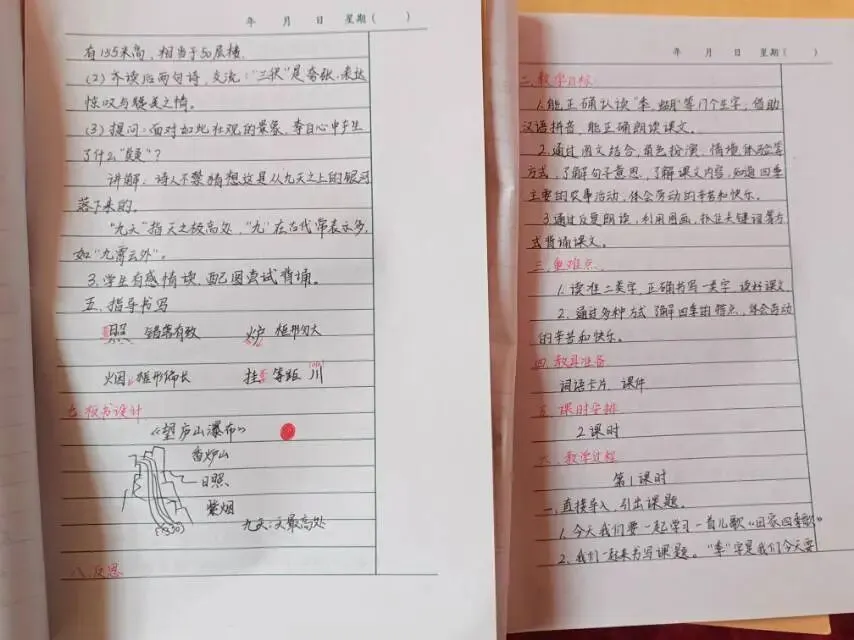 年 月 日 星期( )
有155米高,相当于50层楼.
(2)齐读后两句诗,交流:"三千尺"是夸张.表达
惊叹与赞美之情。
(3)提问:面对如此壮观的景象,李白心中产生
了什么"疑"?
讲解:诗人不禁猜想这是从九天之上的银河
落下来的。
"九天"指天之极高处,"九"在古代常表示多,
如"九霄云外"。
3.学生有感情读,配图尝试背诵。
五、指导书写
照 错落有致 炉 桩形勿大
烟 桩形偏长 挂 等距 川
七、板书设计
《望庐山瀑布》
香炉山
日照
紫烟
九天:天最高处
八、反思
年 月 日 星期( )
二、教学目标
1.能正确认读"季、蝴"等门个生字,借助
汉语拼音,能正确朗读课文。
2.通过图文结合,角色扮演、情境体验等
方式,了解句子意思,了解课文内容,知道四季
主要的农事活动,体会劳动的辛苦和快乐。
3.通过反复朗读,利用图画,抓住关键词等方
式背诵课文。
三、重难点
1.读准二类字,正确书写一类字,读好课文.
2.通过多种方式了解四季的特点,体会劳动
的辛苦和快乐。
四、教具准备
词语卡片、课件
五、课时安排
2课时
六、教学过程
第1课时
一、直接导入,引出课题.
1.今天我们要一起学习一首儿歌《田家四季歌》
2.我们一起来书写课题。"季"字是我们今天要